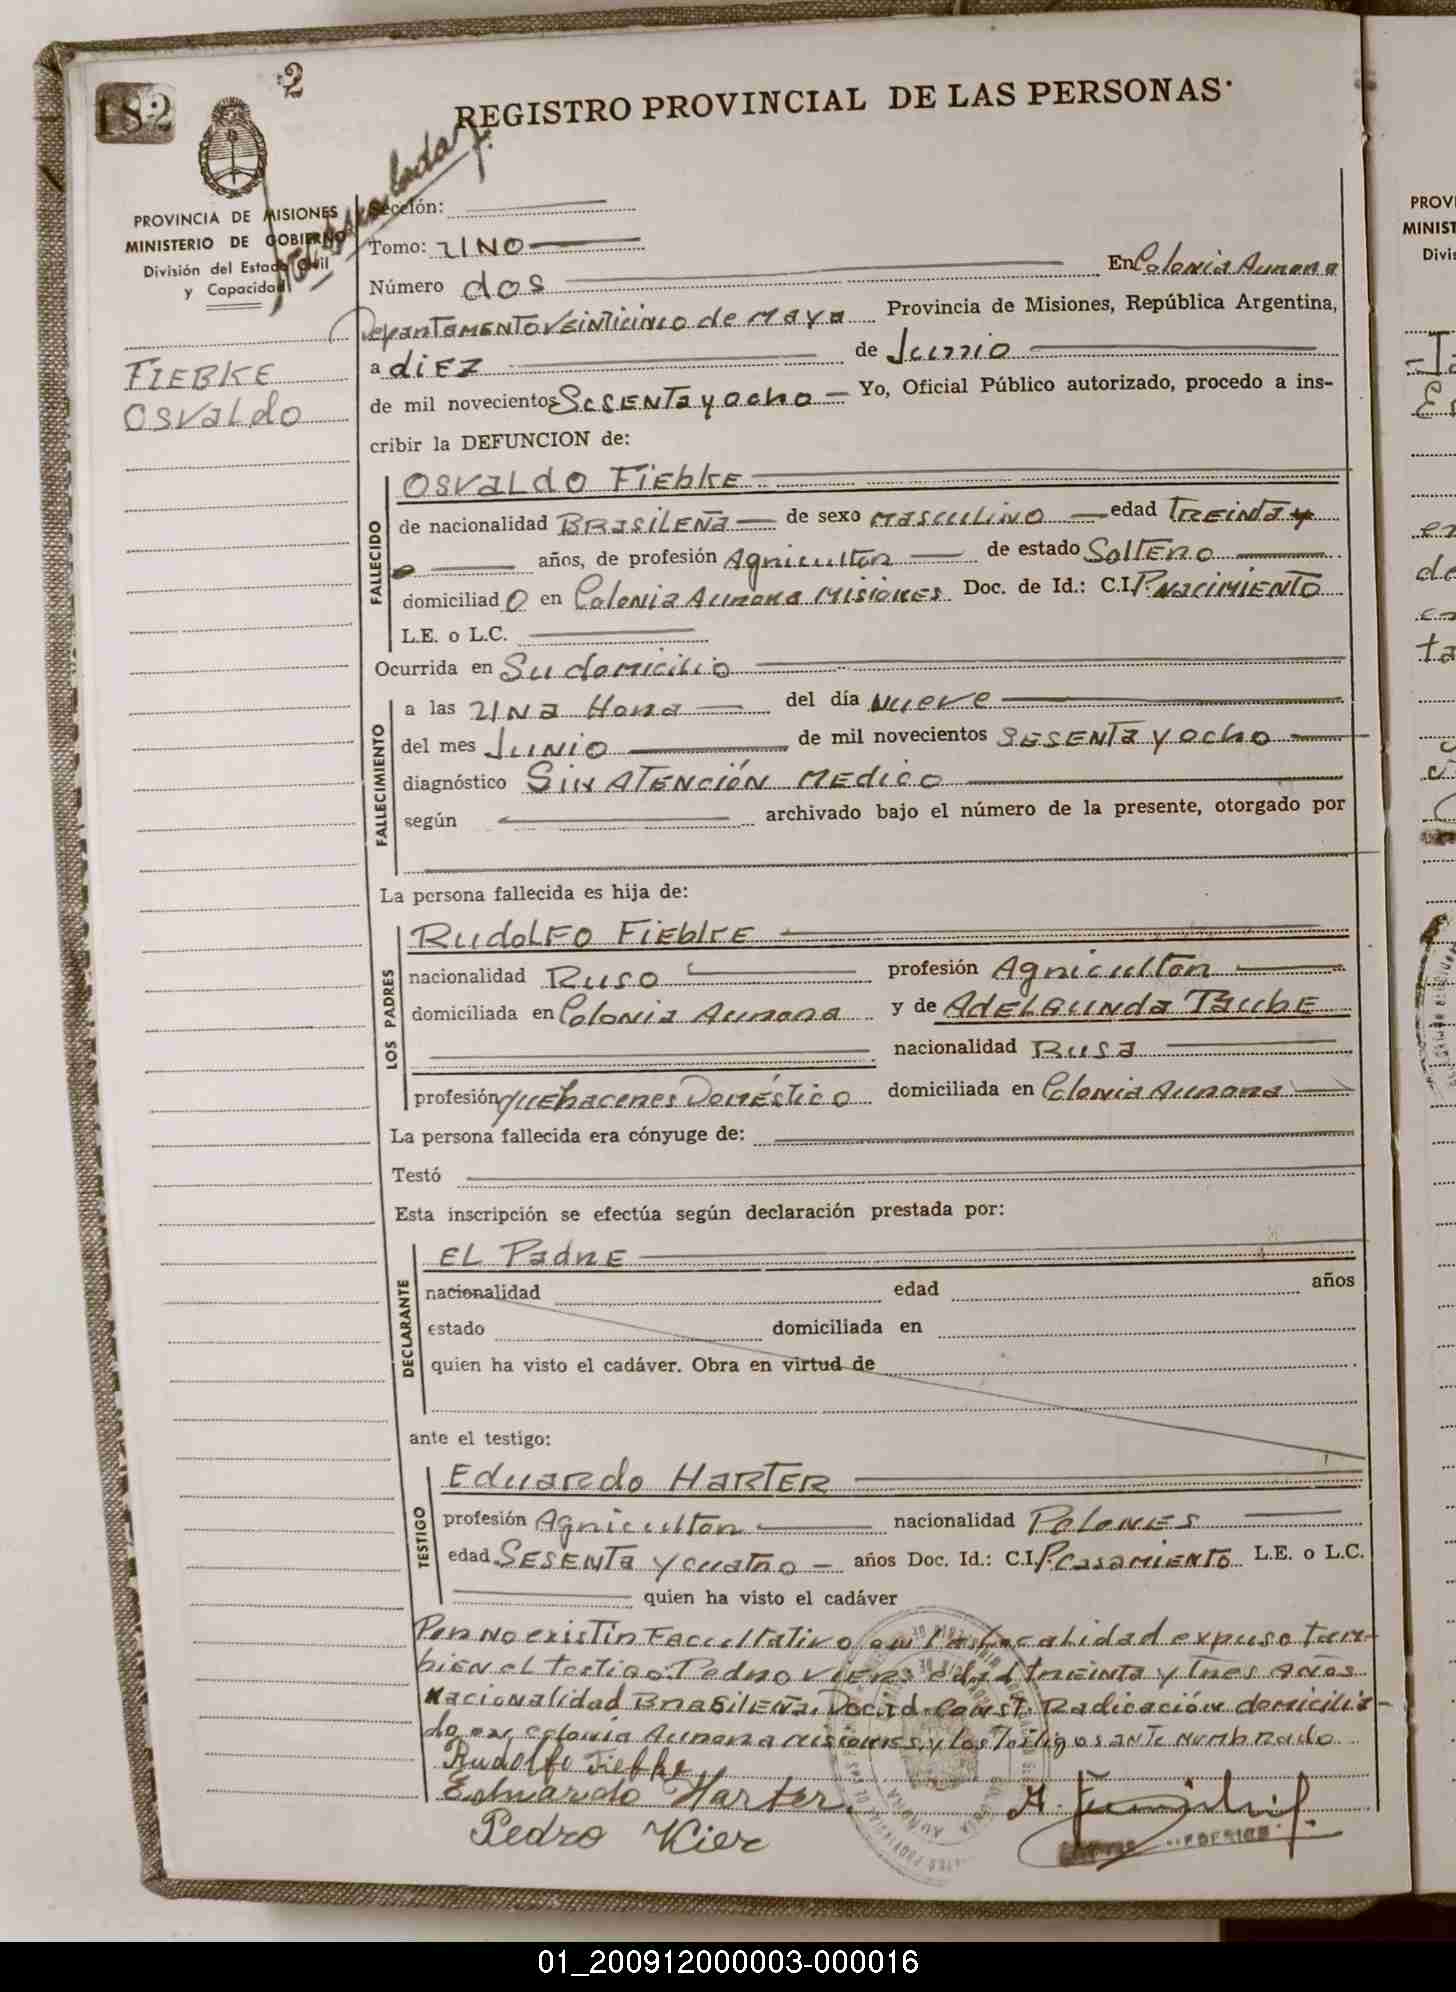 182
2
REGISTRO PROVINCIAL DE LAS PERSONAS
PROVINCIA DE MISIONES
MINISTERIO DE GOBIERNO
División del Estado Civil
y Capacidad
FIEBKE
OSVALDO
Sección:
Tomo: UNO
Número dos En Colonia Aurora
Departamento Veinticinco de Mayo Provincia de Misiones, República Argentina,
a diez de Junio
de mil novecientos Sesenta y ocho Yo, Oficial Público autorizado, procedo a ins-
cribir la DEFUNCION de:
FALLECIDO
Osvaldo Fiebke
de nacionalidad Brasileña de sexo masculino edad Treinta y
años, de profesión Agricultor de estado Soltero
domiciliad o en Colonia Aurora Misiones Doc. de Id.: C.I. P. nacimiento
L.E. o L.C.
Ocurrida en Su domicilio
FALLECIMIENTO
a las una Hora del día nueve
del mes Junio de mil novecientos Sesenta y ocho
diagnóstico Sin Atención Medico
según archivado bajo el número de la presente, otorgado por
La persona fallecida es hija de:
LOS PADRES
Rudolfo Fiebke
nacionalidad Ruso profesión Agricultor
domiciliada en Colonia Aurora y de Adelgunda Taube
nacionalidad Rusa
profesión quehaceres Doméstico domiciliada en Colonia Aurora
La persona fallecida era cónyuge de:
Testó
Esta inscripción se efectúa según declaración prestada por:
DECLARANTE
El Padre
nacionalidad edad años
estado domiciliada en
quien ha visto el cadáver. Obra en virtud de
ante el testigo:
TESTIGO
Eduardo Harter
profesión Agricultor nacionalidad Polones
edad Sesenta y cuatro años Doc. Id.: C.I. P. casamiento L.E. o L.C.
quien ha visto el cadáver
Por no existir Facultativo en la localidad expuso tam-
bien el testigo: Pedro edad treinta y tres años
nacionalidad Brasileña, Doc. id. Const. Radicación domicilia-
do en colonia Aurora misiones, y los Testigos ante nombrado
Rudolfo Fiebke
Eduardo Harter
Pedro Kier
01_200912000003-000016